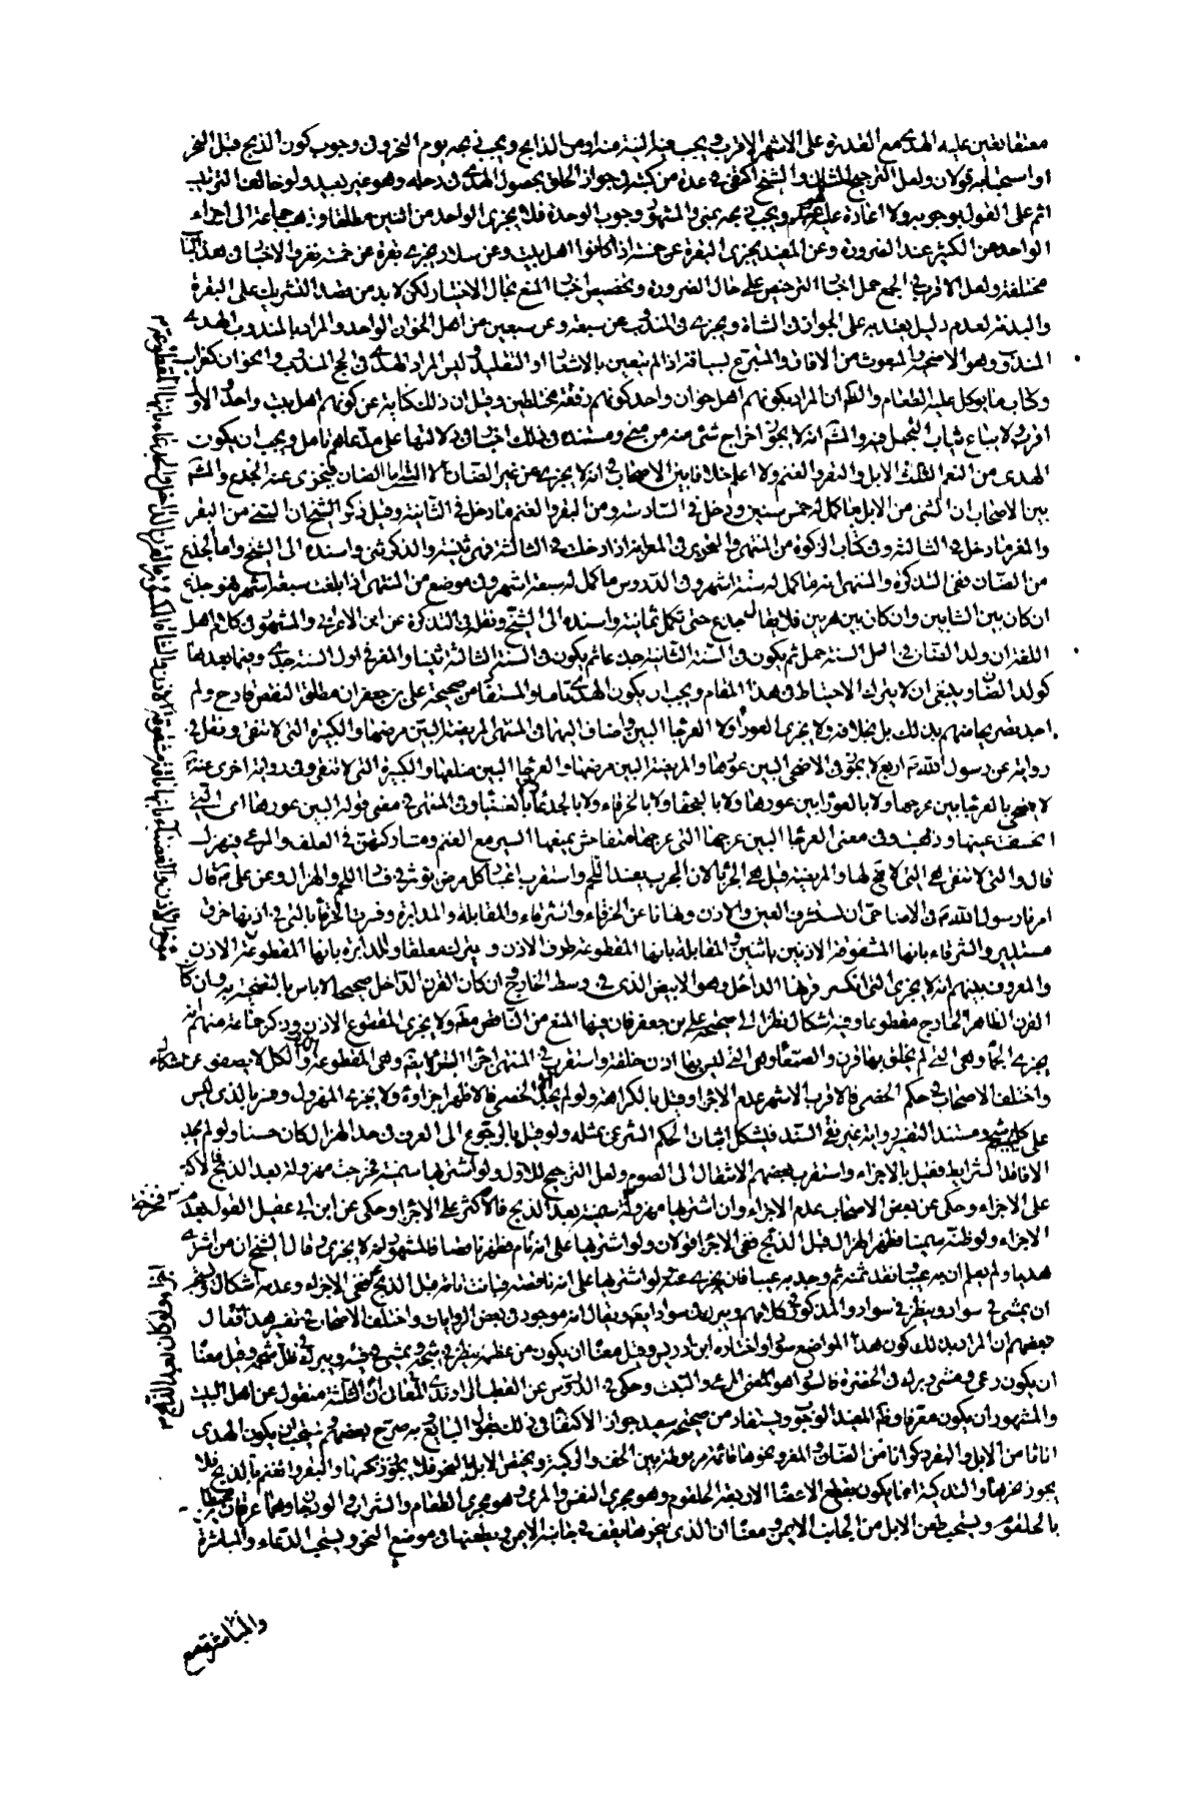 معتقا يقين عليه الهدي مع القدرة على الاشهر الاقرب ويجب فيه النية منه او من الذابح ويجب ذبحه يوم النحر وفي وجوب كون الذبح قبل النحر
او استحبابه قولان ولعل الترجيح للثاني والشيخ اكتفى في عدة من كتبه في جواز الحلق بحصول الهدي في رحله وهو غير بعيد ولو خالف الترتيب
اثم على القول بوجوبه ولا اعادة عليه ويجب ذبحه بمنى والمشهور وجوب الوحدة فلا يجزي الواحد من اثنين مطلقا وذهب جماعة الى اجزاء
الواحد عن الكثير عند الضرورة وعن المفيد يجزي البقرة عن خمسة اذا كانوا اهل بيت وعن سلار يجزي بقرة عن خمسة نفر والاخبار في هذا الباب
مختلفة ولعل الاقرب في الجمع حمل اخبار الترخيص على حال الضرورة وتخصيص اخبار المنع بحال الاختيار لكن لابد من قصد التشريك على البقرة
والبدنة لعدم دليل يعتد به على الجواز في الشاة ويجزي في المندوب عن سبعة وعن سبعين من اهل الخوان الواحد والمراد بالمندوب الهدي
المندوب وهو الاضحية والمبعوث من الافاق والمتبرع بسياقه اذا لم يتعين بالاشعار او التقليد وليس المراد الهدي في الحج المندوب والخوان كغراب
وكتاب ما يوكل عليه الطعام والظاهر ان المراد بكونهم اهل خوان واحد كونهم رفقة مختلطين وقيل ان ذلك كناية عن كونهم اهل بيت واحد والاول
اقرب ولا يباع ثياب التجمل فيه والمشهور انه لا يجوز اخراج شئ منه من منى ومستنده في ذلك اخبار في دلالتها على مدعاهم تامل ويجب ان يكون
الهدي من النعم الثلث الابل والبقر والغنم ولا اعلم خلافا بين الاصحاب في انه لا يجزي من غير الضان الا الثني اما الضان فيجزي عنه الجذع والمشهور
بين الاصحاب ان الثني من الابل ما كمل له خمس سنين ودخل في السادسة ومن البقر والغنم ما دخل في الثانية وقيل ذكر الشيخ ان الثني من البقر
والمعز ما دخل في الثالثة وفي كتاب الزكوة من المنتهى والتحرير في المعز انه اذا دخلت في الثالثة فهي ثنية والذكر ثني واسنده الى الشيخ واما الجذع
من الضان ففي التذكرة والمنتهى انه ما كمل له ستة اشهر وفي الدروس ما كمل له سبعة اشهر وفي موضع من المنتهى اذا بلغت سبعة اشهر فهو جذع
ان كان بين الشابين وان كان بين هرمين فلا يقال جذع حتى تكمل ثمانية واسنده الى الشيخ ونقل في التذكرة عن ابن الاعرابي والمشهور في كلام اهل
اللغة ان ولد الضان في اول السنة حمل ثم يكون في السنة الثانية جذعا ثم يكون في السنة الثالثة ثنيا والمعز في اول السنة جدي وفيما بعدها
كولد الضان وينبغي ان لا يترك الاحتياط في هذا المقام ويجب ان يكون الهدي تاما والمستفاد من صحيحة علي بن جعفر ان مطلق النقص قادح ولم
اجد تصريحا منهم بذلك بل بخلافه ولا يجزي العوراء ولا العرجاء البين واضاف اليهما في المنتهى المريضة البين مرضها والكبيرة التي لا تنقي ونقل في
رواية عن رسول الله ص اربع لا يجوز في الاضحى البين عورها والمريضة البين مرضها والعرجاء البين ضلعها والكبيرة التي لا تنقي وفي رواية اخرى عنه
لا يضحى بالعرجاء بين عرجها ولا بالعوراء بين عورها ولا بالعجفاء ولا بالخرقاء ولا بالجذعاء ولا بالعضباء وفي المنتهى في معنى قوله البين عورها اى التي
انخسفت عينها وذهبت وفي معنى العرجاء البين عرجها التي عرجها متفاحش يمنعها السير مع الغنم ومشاركتهن في العلف والمرعى فتهزل
قال والتي لا تنقى هي التي لا مخ لها والمريضة قيل هي الجرباء لان الجرب يفسد اللحم واستقرب اعتبار كل مرض يؤثر في فساد اللحم والهزال وعن علي ع قال
امرنا رسول الله ص في الاضاحى ان نستشرف العين والاذن ونهانا عن الخرقاء والشرقاء والمقابلة والمدابرة وفسرنا الخرقاء بالتي في اذنها خرق
مستدير والشرقاء بانها المشقوقة الاذنين باثنين والمقابلة بانها المقطوعة طرف الاذن ويترك معلقا والمدابرة بانها المقطوعة الاذن
والمعروف بينهم انه لا يجزي التي انكسر قرنها الداخل وهو الابيض الذي في وسط الخارج وان كان القرن الداخل صحيحا لا باس بالتضحية به وان كان
القرن الظاهر الخارج مقطوعا وفيه اشكال نظرا الى صحيحة علي بن جعفر فان فيها المنع من الناقص مطلقا ولا يجزي المقطوع الاذن وذكر جماعة منهم انه
يجزي الجماء وهي التي لم يخلق بها قرن والصمعاء وهي التي ليس بها اذن خلقة واستقرب في المنتهى اجزاء البتراء ايضا وهي المقطوعة والكل لا يصفو عن اشكال
واختلف الاصحاب في حكم الخصي فالاقرب الاشهر عدم الاجزاء وقيل بالكراهة ولو لم يجد الا الخصي فالاظهر اجزاؤه ولا يجزي المهزول وفسر بالذي ليس
على كليتيه شحم ومستند التفسير رواية غير نقى السند فيشكل اثبات الحكم الشرعي بمثله ولو قيل بالرجوع الى العرف في حد الهزال كان حسنا ولو لم يجد
الا فاقد الشرايط فقيل بالاجزاء واستقرب بعضهم الانتقال الى الصوم ولعل الترجيح للاول ولو اشتريها سمينة فخرجت مهزولة بعد الذبح فالاكثر
على الاجزاء وحكى عن بعض الاصحاب عدم الاجزاء وان اشتريها مهزولة فخرجت سمينة بعد الذبح فالاكثر على الاجزاء وحكى عن ابن ابي عقيل القول بعدم
الاجزاء ولو ظنه سمينا فظهر الهزال قبل الذبح ففي الاجزاء قولان ولو اشتريها على انه تام فظهر ناقصا فالمشهور انه لا يجزي وقال الشيخ ان من اشترى
هديا ولم يعلم ان به عيبا ونقد ثمنه ثم وجد به عيبا فان يجزي عنه ولو اشتريها على انه ناقصة فبانت تامة قبل الذبح ففي الاجزاء وعدمه اشكال ويستحب
ان يمشى في سواد وينظر في سواد والمذكور في كلامهم ويبرك في سواد ايضا ويقال انه موجود في بعض الروايات واختلف الاصحاب في تفسير هذا فقال
بعضهم ان المراد بذلك كون هذه المواضع سوادا واختاره ابن ادريس وقيل معناه ان يكون من عظمه ينظر في شحمه ويمشى في فيئه ويبرك في ظل شحمه وقيل معناه
ان يكون رعى ومشى وبرك في الخضرة فالسواد هو المرعى والنبت وحكى في الدروس عن القطب الراوندي انه قال ان الثلثة منقول عن اهل البيت
والمشهور ان يكون معرفا وظاهر المفيد الوجوب ويستفاد من صحيحة سعيد جواز الاكتفاء في ذلك بقول البايع به صرح بعضهم ويستحب ان يكون الهدي
اناثا من الابل والبقر ذكرانا من الضان والمعز ونحرها قائمة مربوطة بين الخف والركبة ويختص الابل بالنحر فلا يجوز ذبحها والبقر والغنم بالذبح فلا
يجوز نحرها والتذكية انما يكون بقطع الاعضاء الاربعة الحلقوم وهو مجرى النفس والمرى وهو مجرى الطعام والشراب والودجان وهما عرقان محيطان
بالحلقوم ويستحب طعن الابل من الجانب الايمن ومعناه ان الذى ينحرها يقف في جانبه الايمن ويطعنها في موضع النحر ويستحب الدعاء والمباشرة
والمباشرة مع